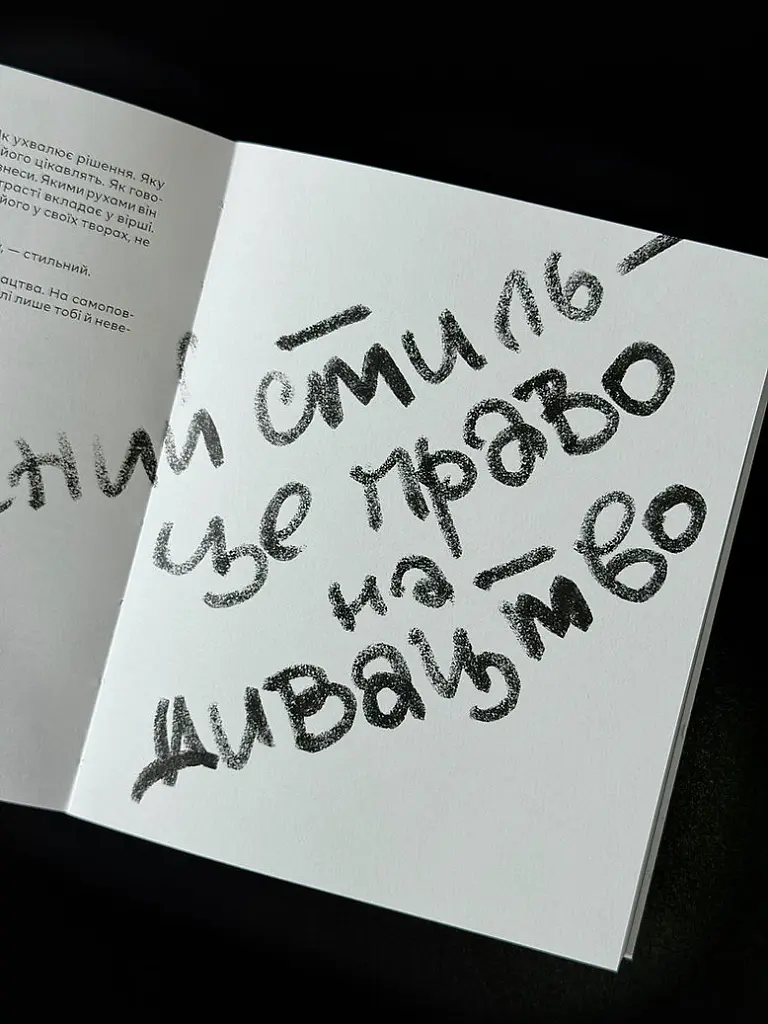 к ухвалює рішення. Яку
його цікавлять. Як гово-
знеси. Якими рухами він
трасті вкладає у вірші.
його у своїх творах, не
, — стильний.
ацтва. На самопов-
лі лише тобі й неве-
ний стиль —
це право
на
дивацтво